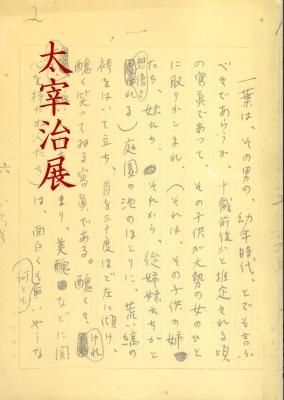 2
太宰治展
一葉は、その男の、幼年時代、とでも言ふ
べきであらうか、十歳前後かと推定される頃
の寫真であつて、その子供が大勢の女のひと
に取りかこまれ、(それは、その子供の姉
たち、妹たち、それから、從姉妹たちかと
想像される)庭園の池のほとりに、荒い縞の
袴をはいて立ち、首を三十度ほど左に傾け、
醜く笑つてゐる寫真である。醜く、けれ
まり 美醜などに関
たち は、面白くも
何とも